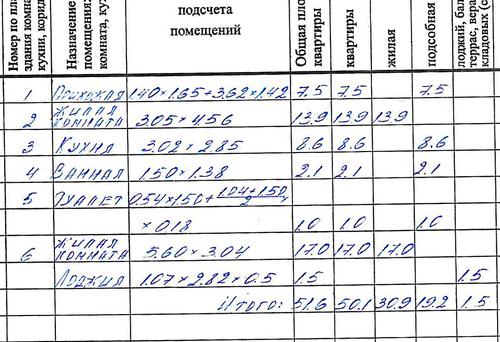 Номер по пла
здания комна
кухни, корид
Назначение
помещения:
комната, ку
подсчета
помещений
Общая пло
квартиры
квартиры
жилая
подсобная
лоджий, бал
террас, вера
кладовых (с
1 Прихожая 1.40×1.65+3.62×1.42 7.5 7.5 7.5
2 Жилая комната 3.05×4.56 13.9 13.9 13.9
3 Кухня 3.02×2.85 8.6 8.6 8.6
4 Ванная 1.50×1.38 2.1 2.1 2.1
5 Туалет 0.54×1.50+(1.04+1.50)/2×
×0.18 1.0 1.0 1.0
6 Жилая комната 5.60×3.04 17.0 17.0 17.0
Лоджия 1.07×2.82×0.5 1.5 1.5
Итого: 51.6 50.1 30.9 19.2 1.5